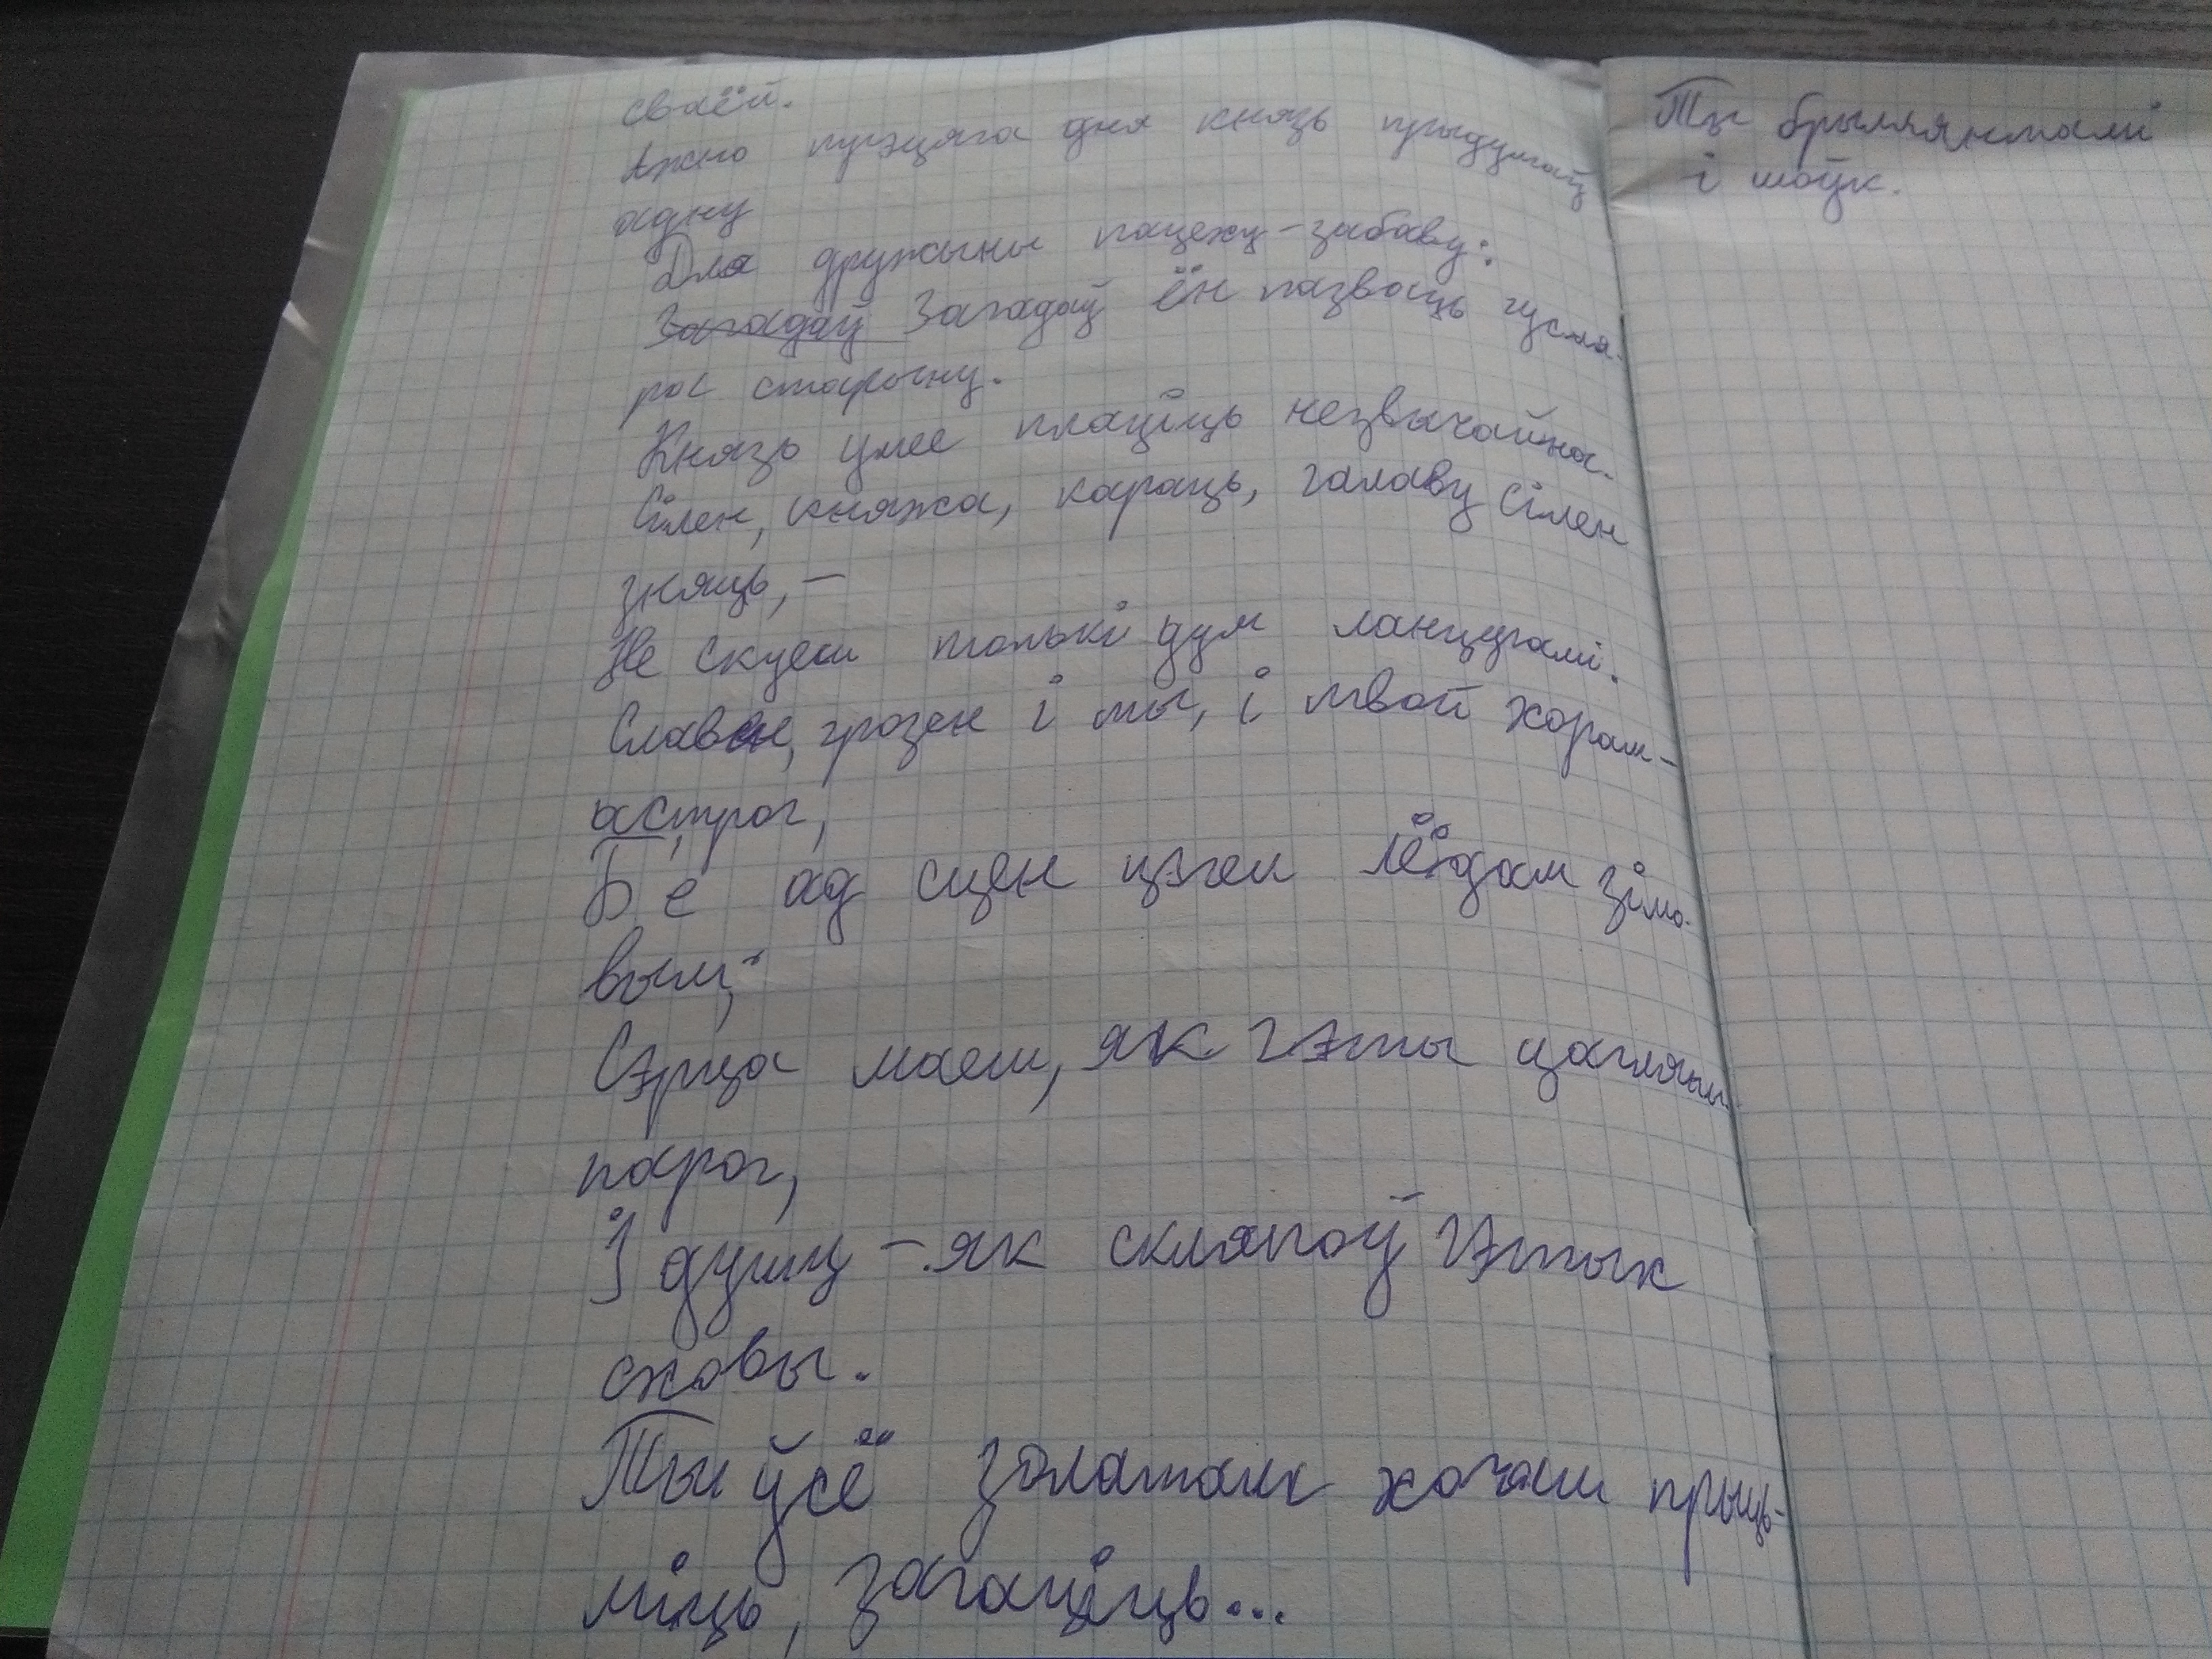 сваёй.
Ажно трэцяга дня князь прыдумаў
адну
Для дружыны пацеху-забаву:
Загадаў Загадаў ён пазваць гусля-
ра старыну.
Князь умее плаціць незвычайна.
Сілен, княжа, караць, галаву сілен
зняць, –
Не скуеш толькі дум ланцугамі.
Славен, грозен і ты, і твой хорам-
астрог,
Б'е ад сцен цэгел лёдам зімо-
вым;
Сэрца маеш, як гэты цагляны
парог,
І душу – як скляпоў гэтых
сховы.
Ты ўсё золатам хочаш прыць-
міць, загаціць...
Ты брыллянтамі
і шоўк.